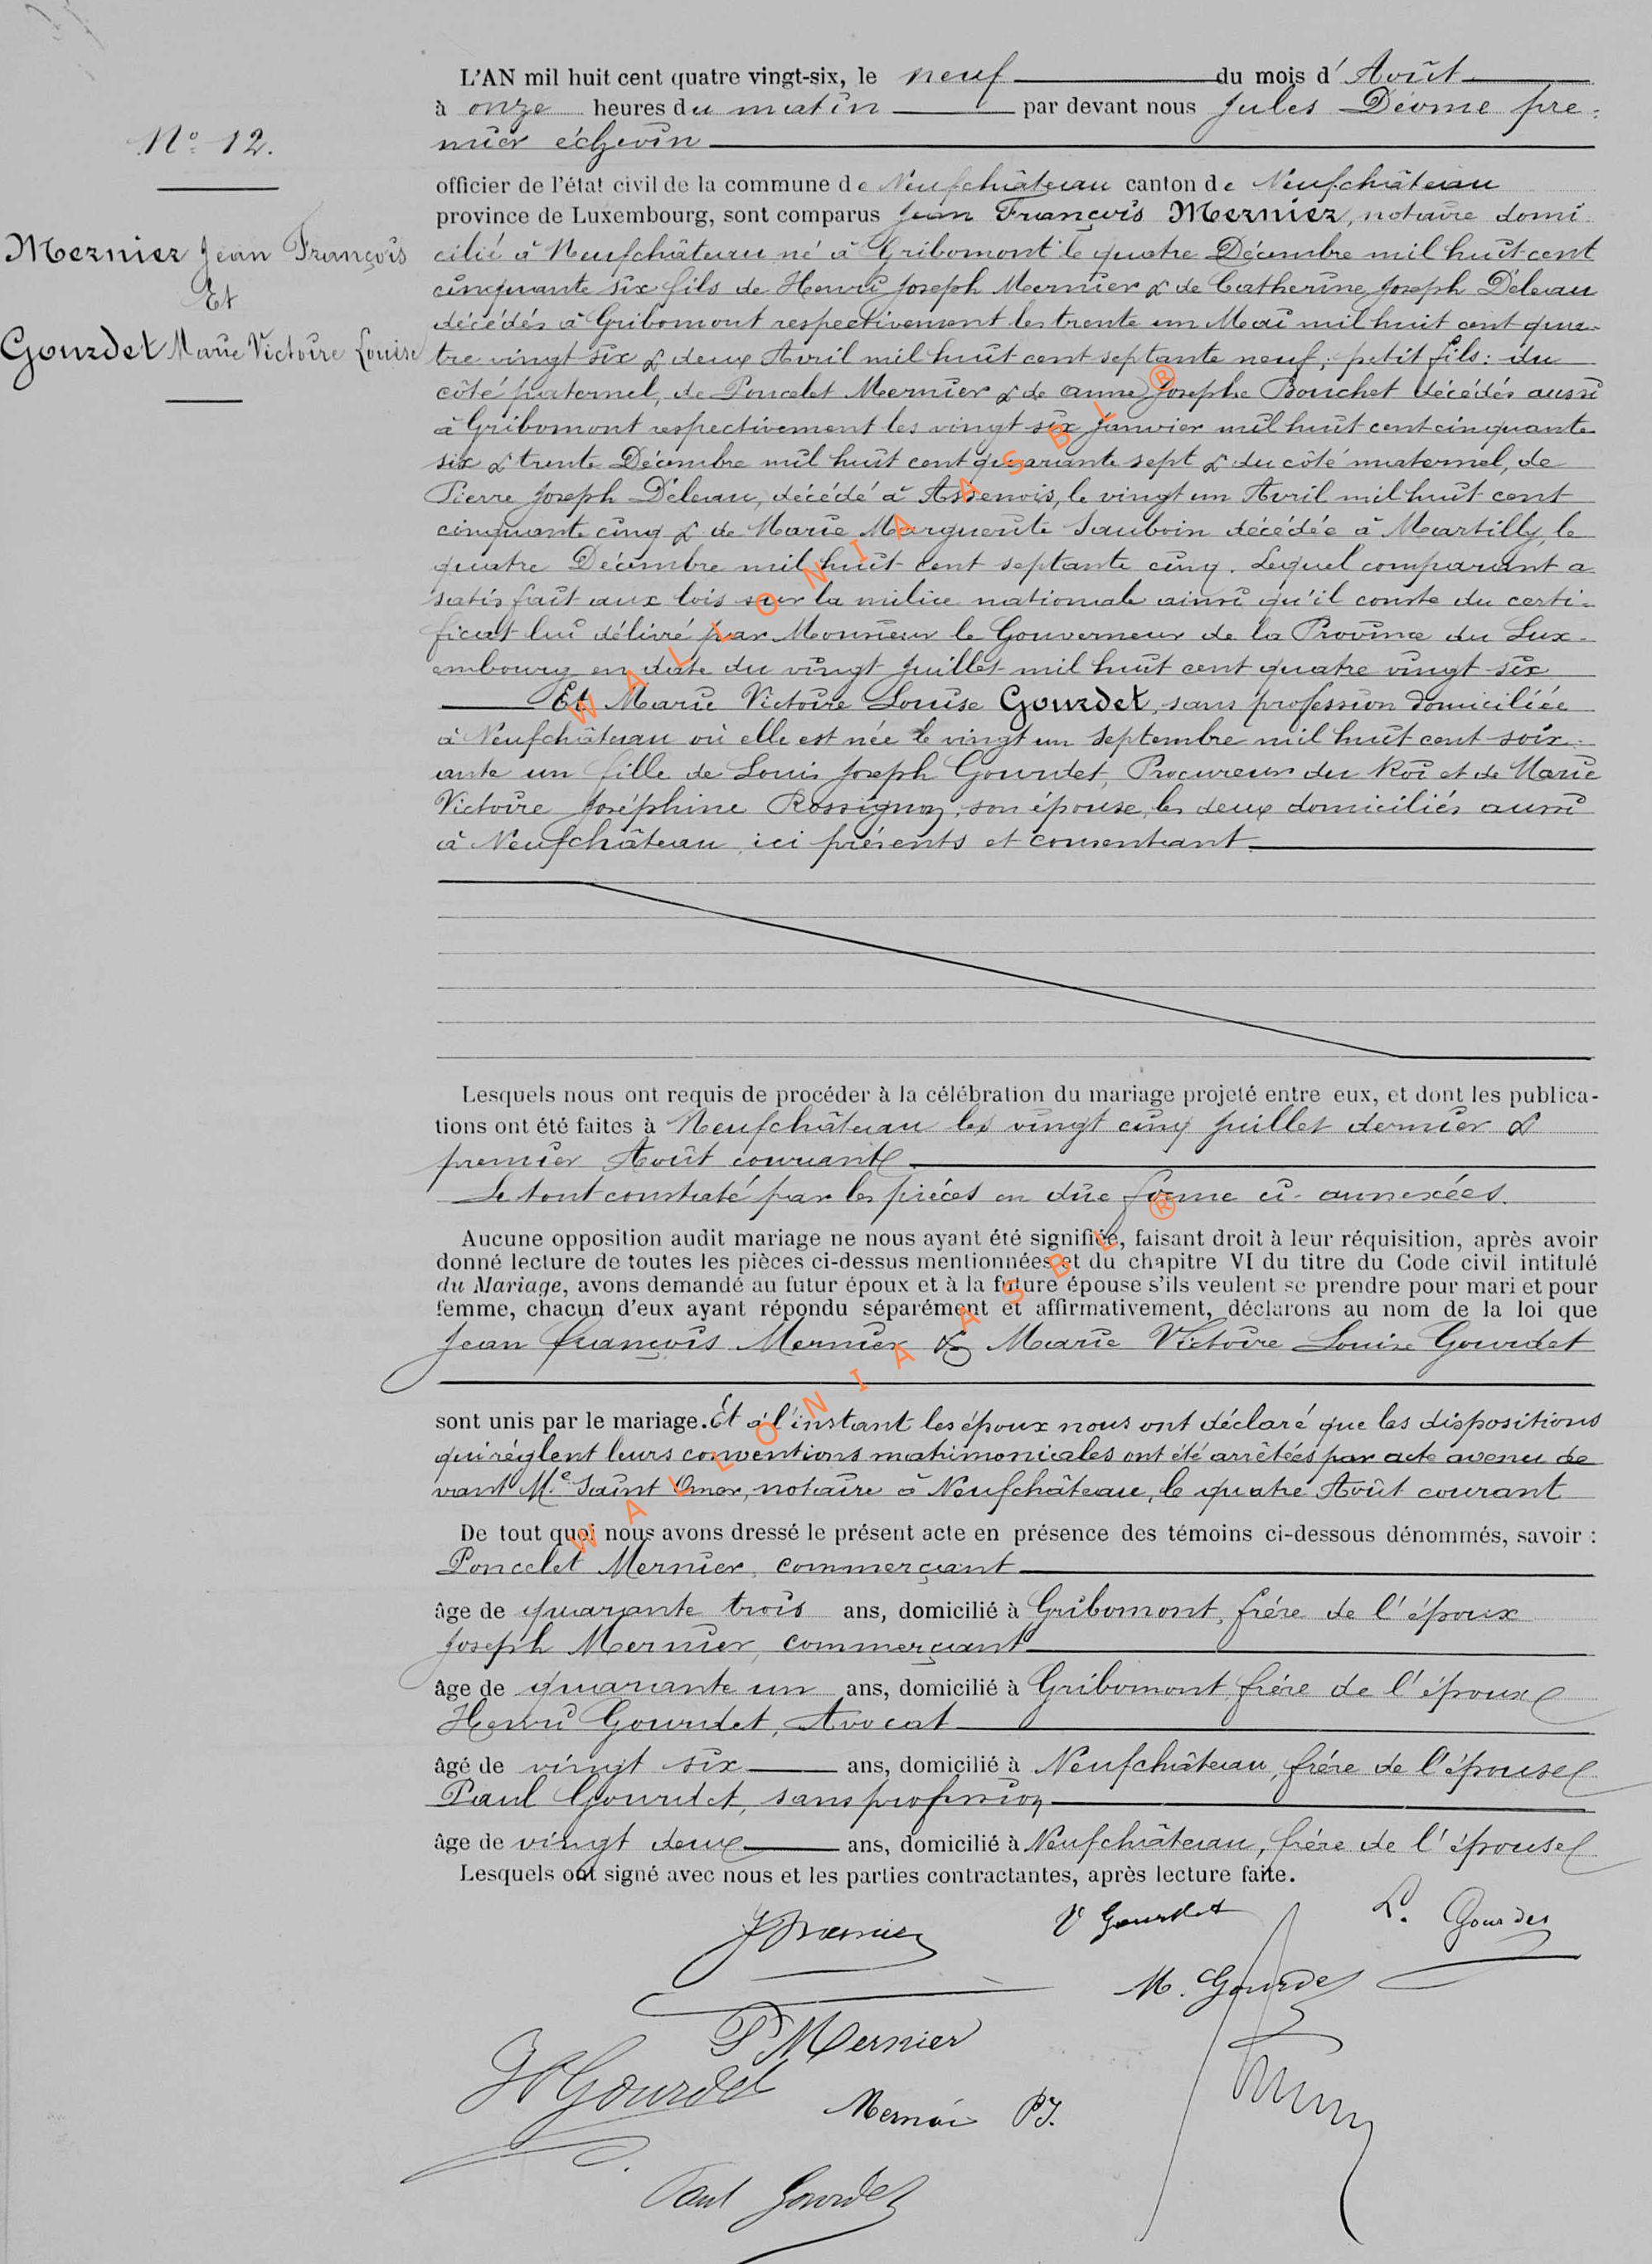 L'AN mil huit cent quatre vingt-six, le neuf du mois d'Août
à onze heures du matin par devant nous Jules Déome pre-
mier échevin
N° 12.
officier de l'état civil de la commune de Neufchâteau canton de Neufchâteau
province de Luxembourg, sont comparus Jean François Mernier, notaire domi
Mernier Jean François
Et
Gourdet Marie Victoire Louise
cilié à Neufchâteau né à Gribomont le quatre Décembre mil huit cent
cinquante six fils de Henri Joseph Mernier & de Catherine Joseph Déleau
décédés à Gribomont respectivement les trente un Mai mil huit cent qua-
tre vingt six & deux Avril mil huit cent septante neuf; petit fils: du
côté paternel, de Poncelet Mernier & de anne Josephe Bouchet décédés aussi
à Gribomont respectivement les vingt six Janvier mil huit cent cinquante
six & trente Décembre mil huit cent quarante sept & du côté maternel, de
Pierre Joseph Déleau, décédé à Assenois, le vingt un Avril mil huit cent
cinquante cinq & de Marie Marguerite Sauboin décédée à Martilly, le
quatre Décembre mil huit cent septante cinq. Lequel comparant a
satisfait aux lois sur la milice nationale ainsi qu'il conste du certi-
ficat lui délivré par Monsieur le Gouverneur de la Province du Lux-
embourg en date du vingt Juillet mil huit cent quatre vingt six
Et Marie Victoire Louise Gourdet, sans profession domiciliée
à Neufchâteau où elle est née le vingt un Septembre mil huit cent soix-
ante un fille de Louis Joseph Gourdet, Procureur du Roi et de Marie
Victoire Joséphine Rossignon, son épouse, les deux domiciliés aussi
à Neufchâteau, ici présents et consentant.
Lesquels nous ont requis de procéder à la célébration du mariage projeté entre eux, et dont les publica-
tions ont été faites à Neufchâteau les vingt cinq Juillet dernier &
premier Août courant.
Le tout constaté par les pièces en dûe forme ci-annexées.
Aucune opposition audit mariage ne nous ayant été signifiée, faisant droit à leur réquisition, après avoir
donné lecture de toutes les pièces ci-dessus mentionnées et du chapitre VI du titre du Code civil intitulé
du Mariage, avons demandé au futur époux et à la future épouse s'ils veulent se prendre pour mari et pour
femme, chacun d'eux ayant répondu séparément et affirmativement, déclarons au nom de la loi que
Jean François Mernier & Marie Victoire Louise Gourdet
sont unis par le mariage. Et à l'instant les époux nous ont déclaré que les dispositions
qui réglent leurs conventions matrimoniales ont été arrêtées par acte avenu de
vant Me Saint Omer, notaire à Neufchâteau, le quatre Août courant
De tout quoi nous avons dressé le présent acte en présence des témoins ci-dessous dénommés, savoir :
Poncelet Mernier, commerçant
âge de quarante trois ans, domicilié à Gribomont, frère de l'époux
Joseph Mernier, commerçant
âge de quarante un ans, domicilié à Gribomont frère de l'époux
Henri Gourdet, Avocat
âgé de vingt six ans, domicilié à Neufchâteau, frère de l'épouse
Paul Gourdet, sans profession
âge de vingt deux ans, domicilié à Neufchâteau, frère de l'épouse
Lesquels ont signé avec nous et les parties contractantes, après lecture faite.
V Gourdet
L. Gourdet
M. Gourdet
P Mernier
H Gourdet
Mernier PJ.
Paul Gourdet
WALLONIA ASBL ®
WALLONIA ASBL ®